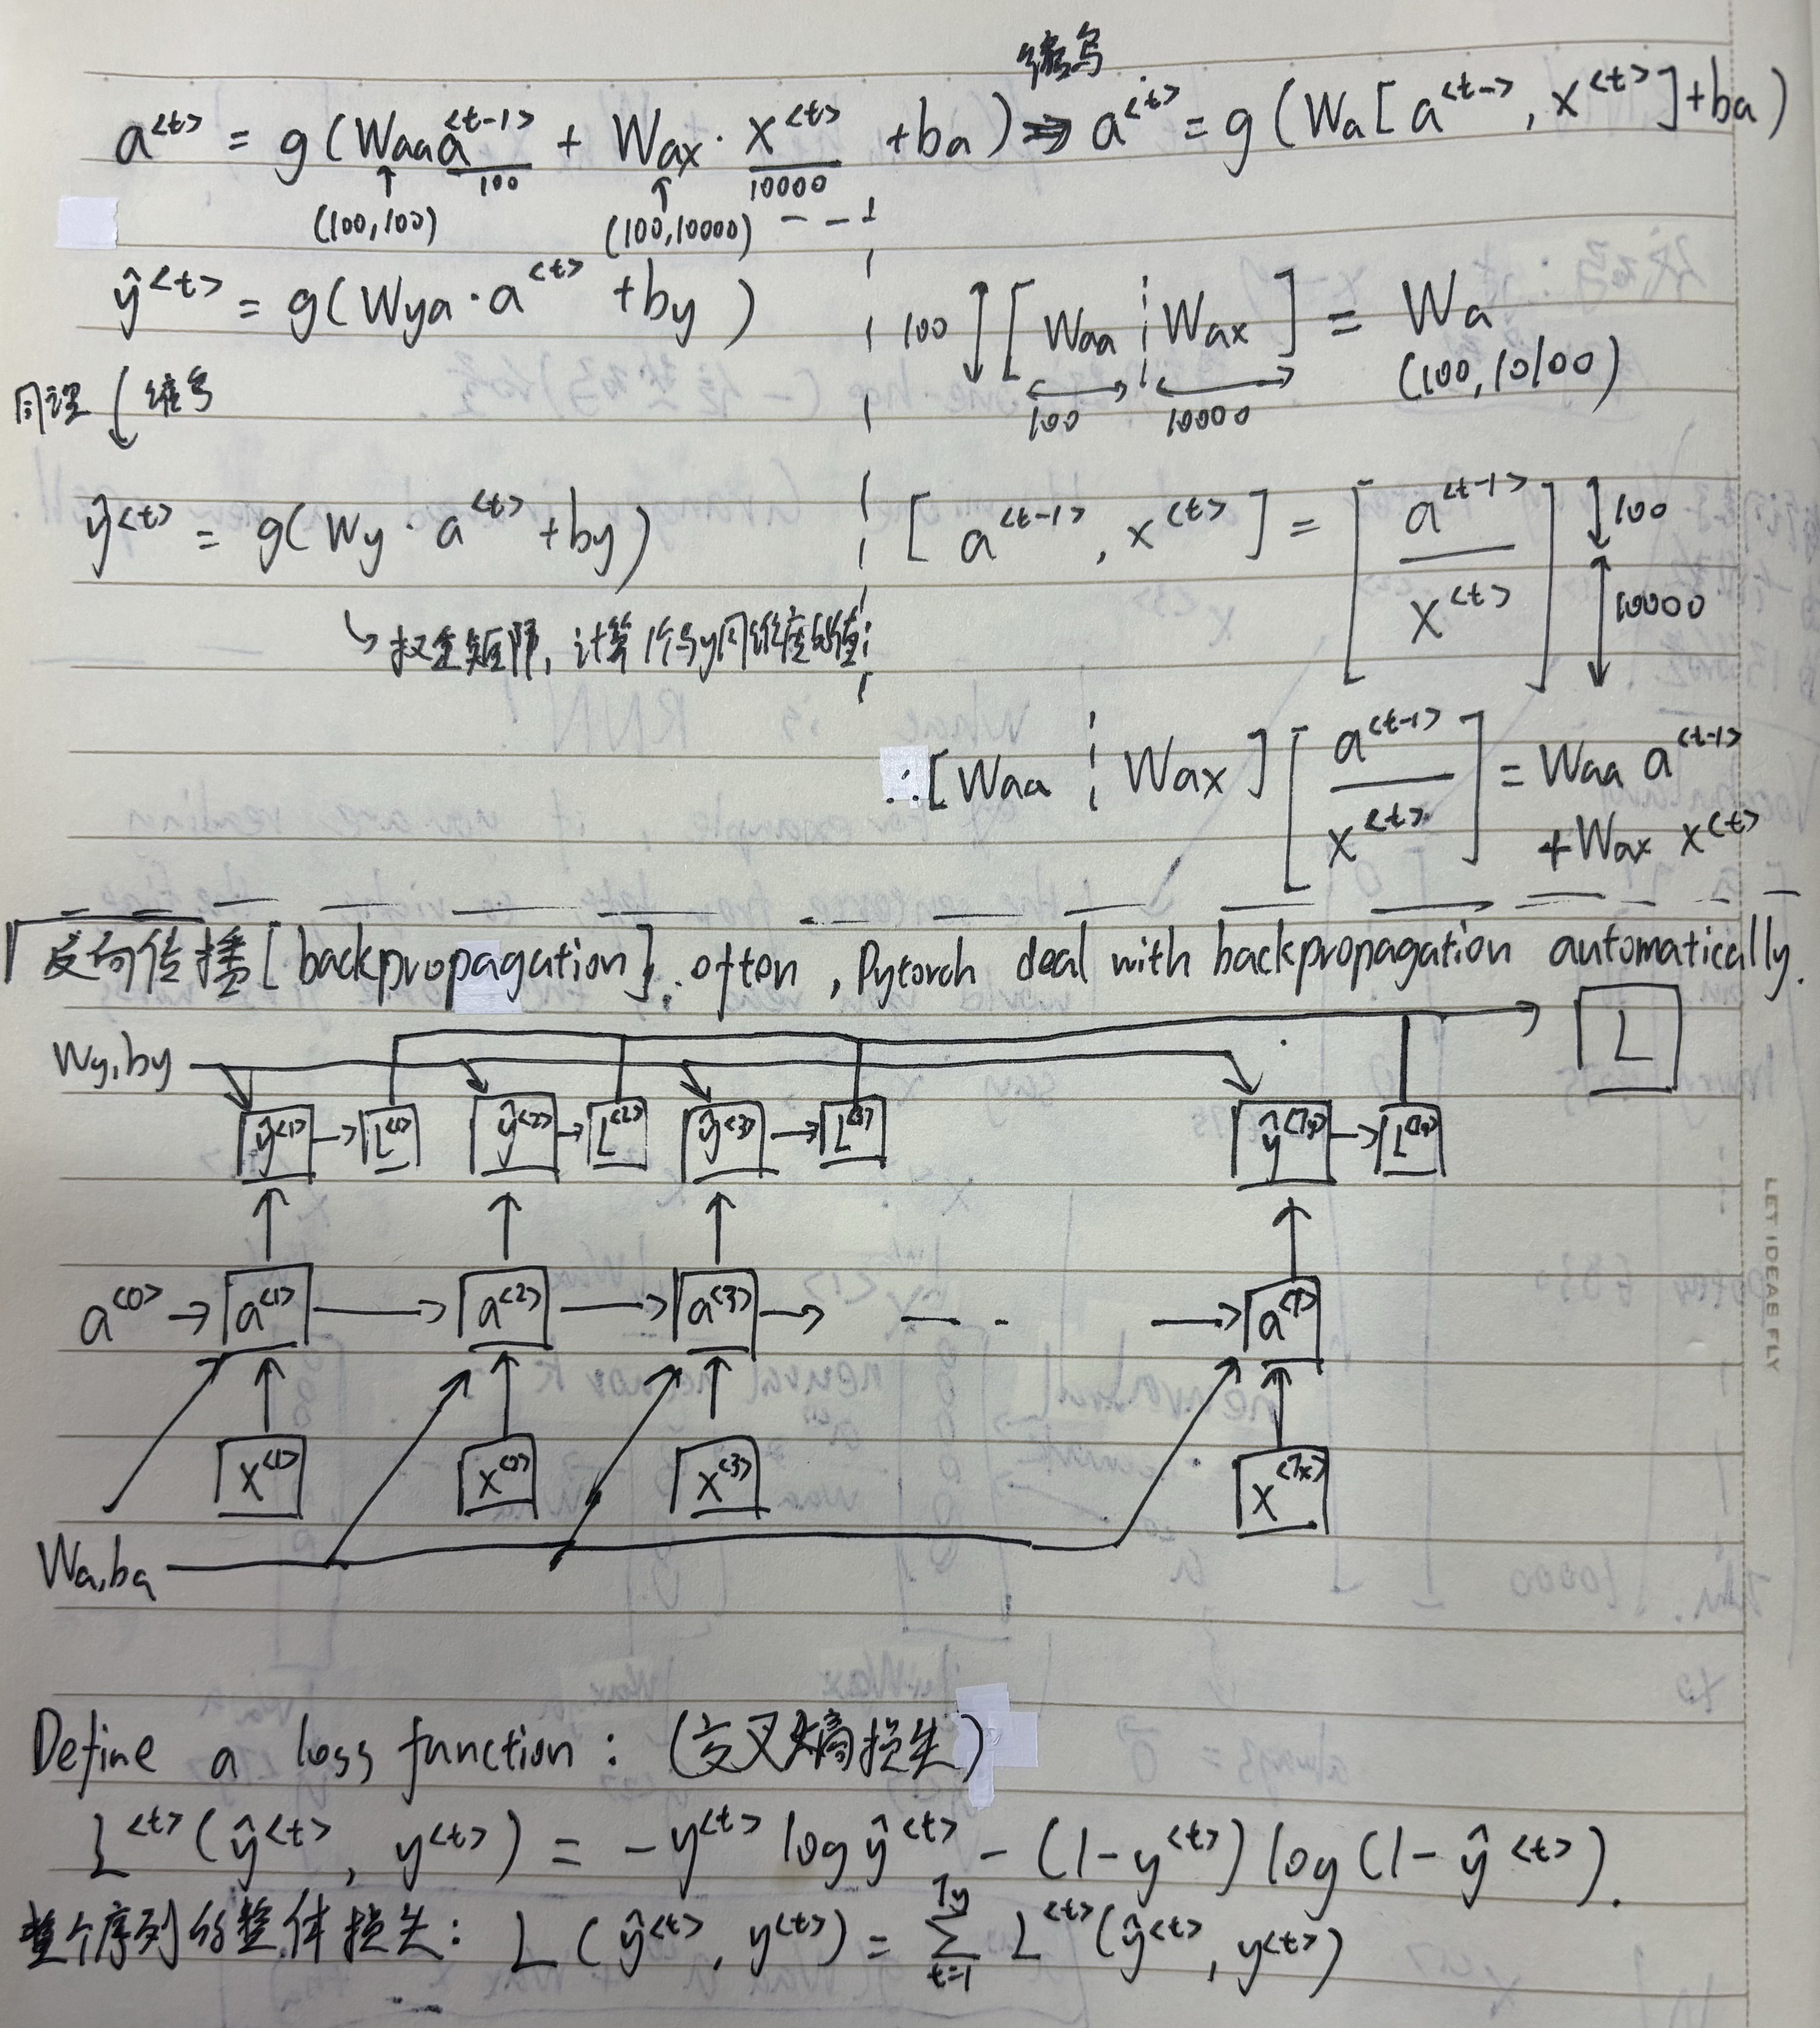 缩写
a<t> = g(Waa a<t-1> + Wax · x<t> + ba) ⇒ a<t> = g(Wa[a<t->, x<t>]+ba)
↑ 100 ↑ 10000
(100,100) (100,10000)
ŷ<t> = g(Wya · a<t> + by)
100 ↕ [Waa ¦ Wax] = Wa
100 10000 (100,10100)
同理 ↓ 缩写
ŷ<t> = g(Wy · a<t> + by)
[a<t-1>, x<t>] = [a<t-1> / x<t>] ↕100 ↕10000
↳ 权重矩阵, 计算一个与y同维度的值
∴ [Waa ¦ Wax] [a<t-1> / x<t>] = Waa a<t-1>
+ Wax x<t>
反向传播[backpropagation]. often, Pytorch deal with backpropagation automatically.
L
Wy,by
ŷ<1> → L<1> ŷ<2> → L<2> ŷ<3> → L<3> ŷ<Ty> → L<Ty>
a<0> → a<1> → a<2> → a<3> → ---- → a<T>
x<1> x<2> x<3> x<Tx>
Wa,ba
LET IDEAS FLY
Define a loss function: (交叉熵损失)
L<t>(ŷ<t>, y<t>) = -y<t> log ŷ<t> - (1-y<t>) log(1-ŷ<t>).
整个序列的整体损失: L(ŷ<t>, y<t>) = Σ_{t=1}^{Ty} L<t>(ŷ<t>, y<t>)